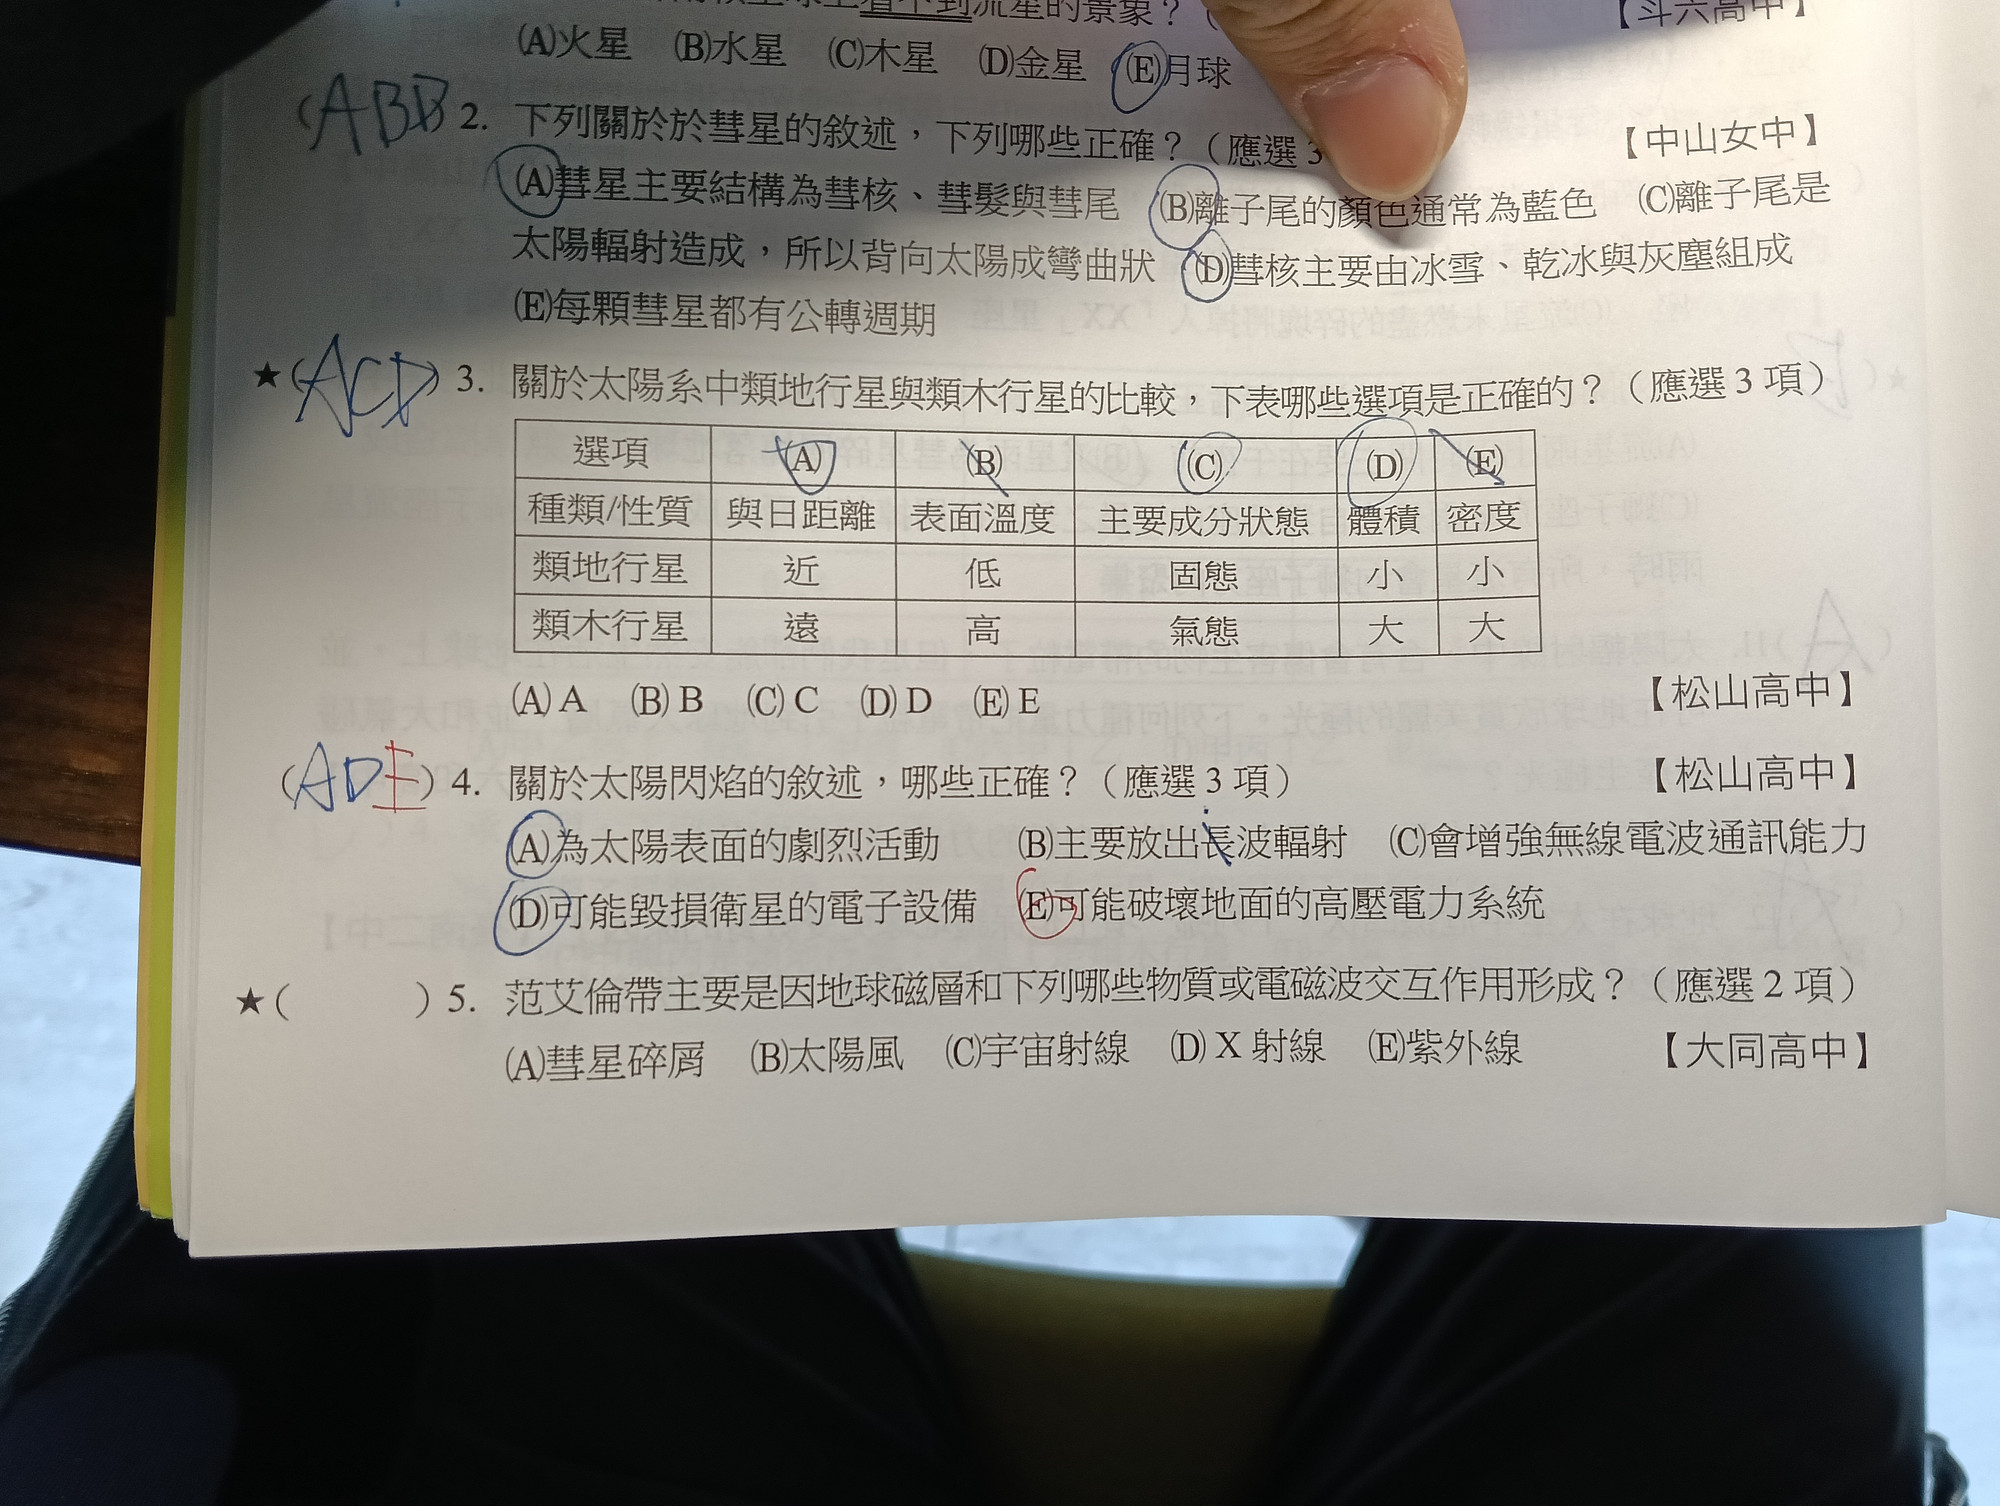 看不到流星的景象？（ 【斗六高中】
(A)火星 (B)水星 (C)木星 (D)金星 (E)月球
(ABD 2. 下列關於於彗星的敘述，下列哪些正確？（應選 3 【中山女中】
(A)彗星主要結構為彗核、彗髮與彗尾 (B)離子尾的顏色通常為藍色 (C)離子尾是
太陽輻射造成，所以背向太陽成彎曲狀 (D)彗核主要由冰雪、乾冰與灰塵組成
(E)每顆彗星都有公轉週期
★(ACD) 3. 關於太陽系中類地行星與類木行星的比較，下表哪些選項是正確的？（應選 3 項）
選項 (A) (B) (C) (D) (E)
種類/性質 與日距離 表面溫度 主要成分狀態 體積 密度
類地行星 近 低 固態 小 小
類木行星 遠 高 氣態 大 大
(A) A (B) B (C) C (D) D (E) E 【松山高中】
(ADE) 4. 關於太陽閃焰的敘述，哪些正確？（應選 3 項） 【松山高中】
(A)為太陽表面的劇烈活動 (B)主要放出長波輻射 (C)會增強無線電波通訊能力
(D)可能毀損衛星的電子設備 (E)可能破壞地面的高壓電力系統
★( ) 5. 范艾倫帶主要是因地球磁層和下列哪些物質或電磁波交互作用形成？（應選 2 項）
(A)彗星碎屑 (B)太陽風 (C)宇宙射線 (D) X 射線 (E)紫外線 【大同高中】